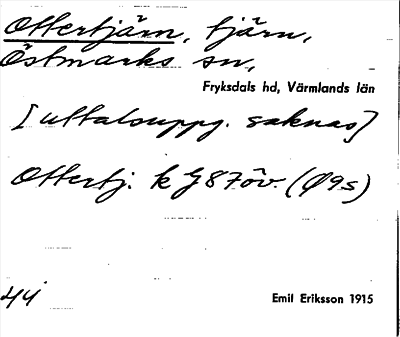 Ottertjärn, tjärn,
Östmarks sn,
Fryksdals hd, Värmlands län
[uttalsuppg. saknas]
Ottertj. k G87öv. (Ø9s)
44
Emil Eriksson 1915